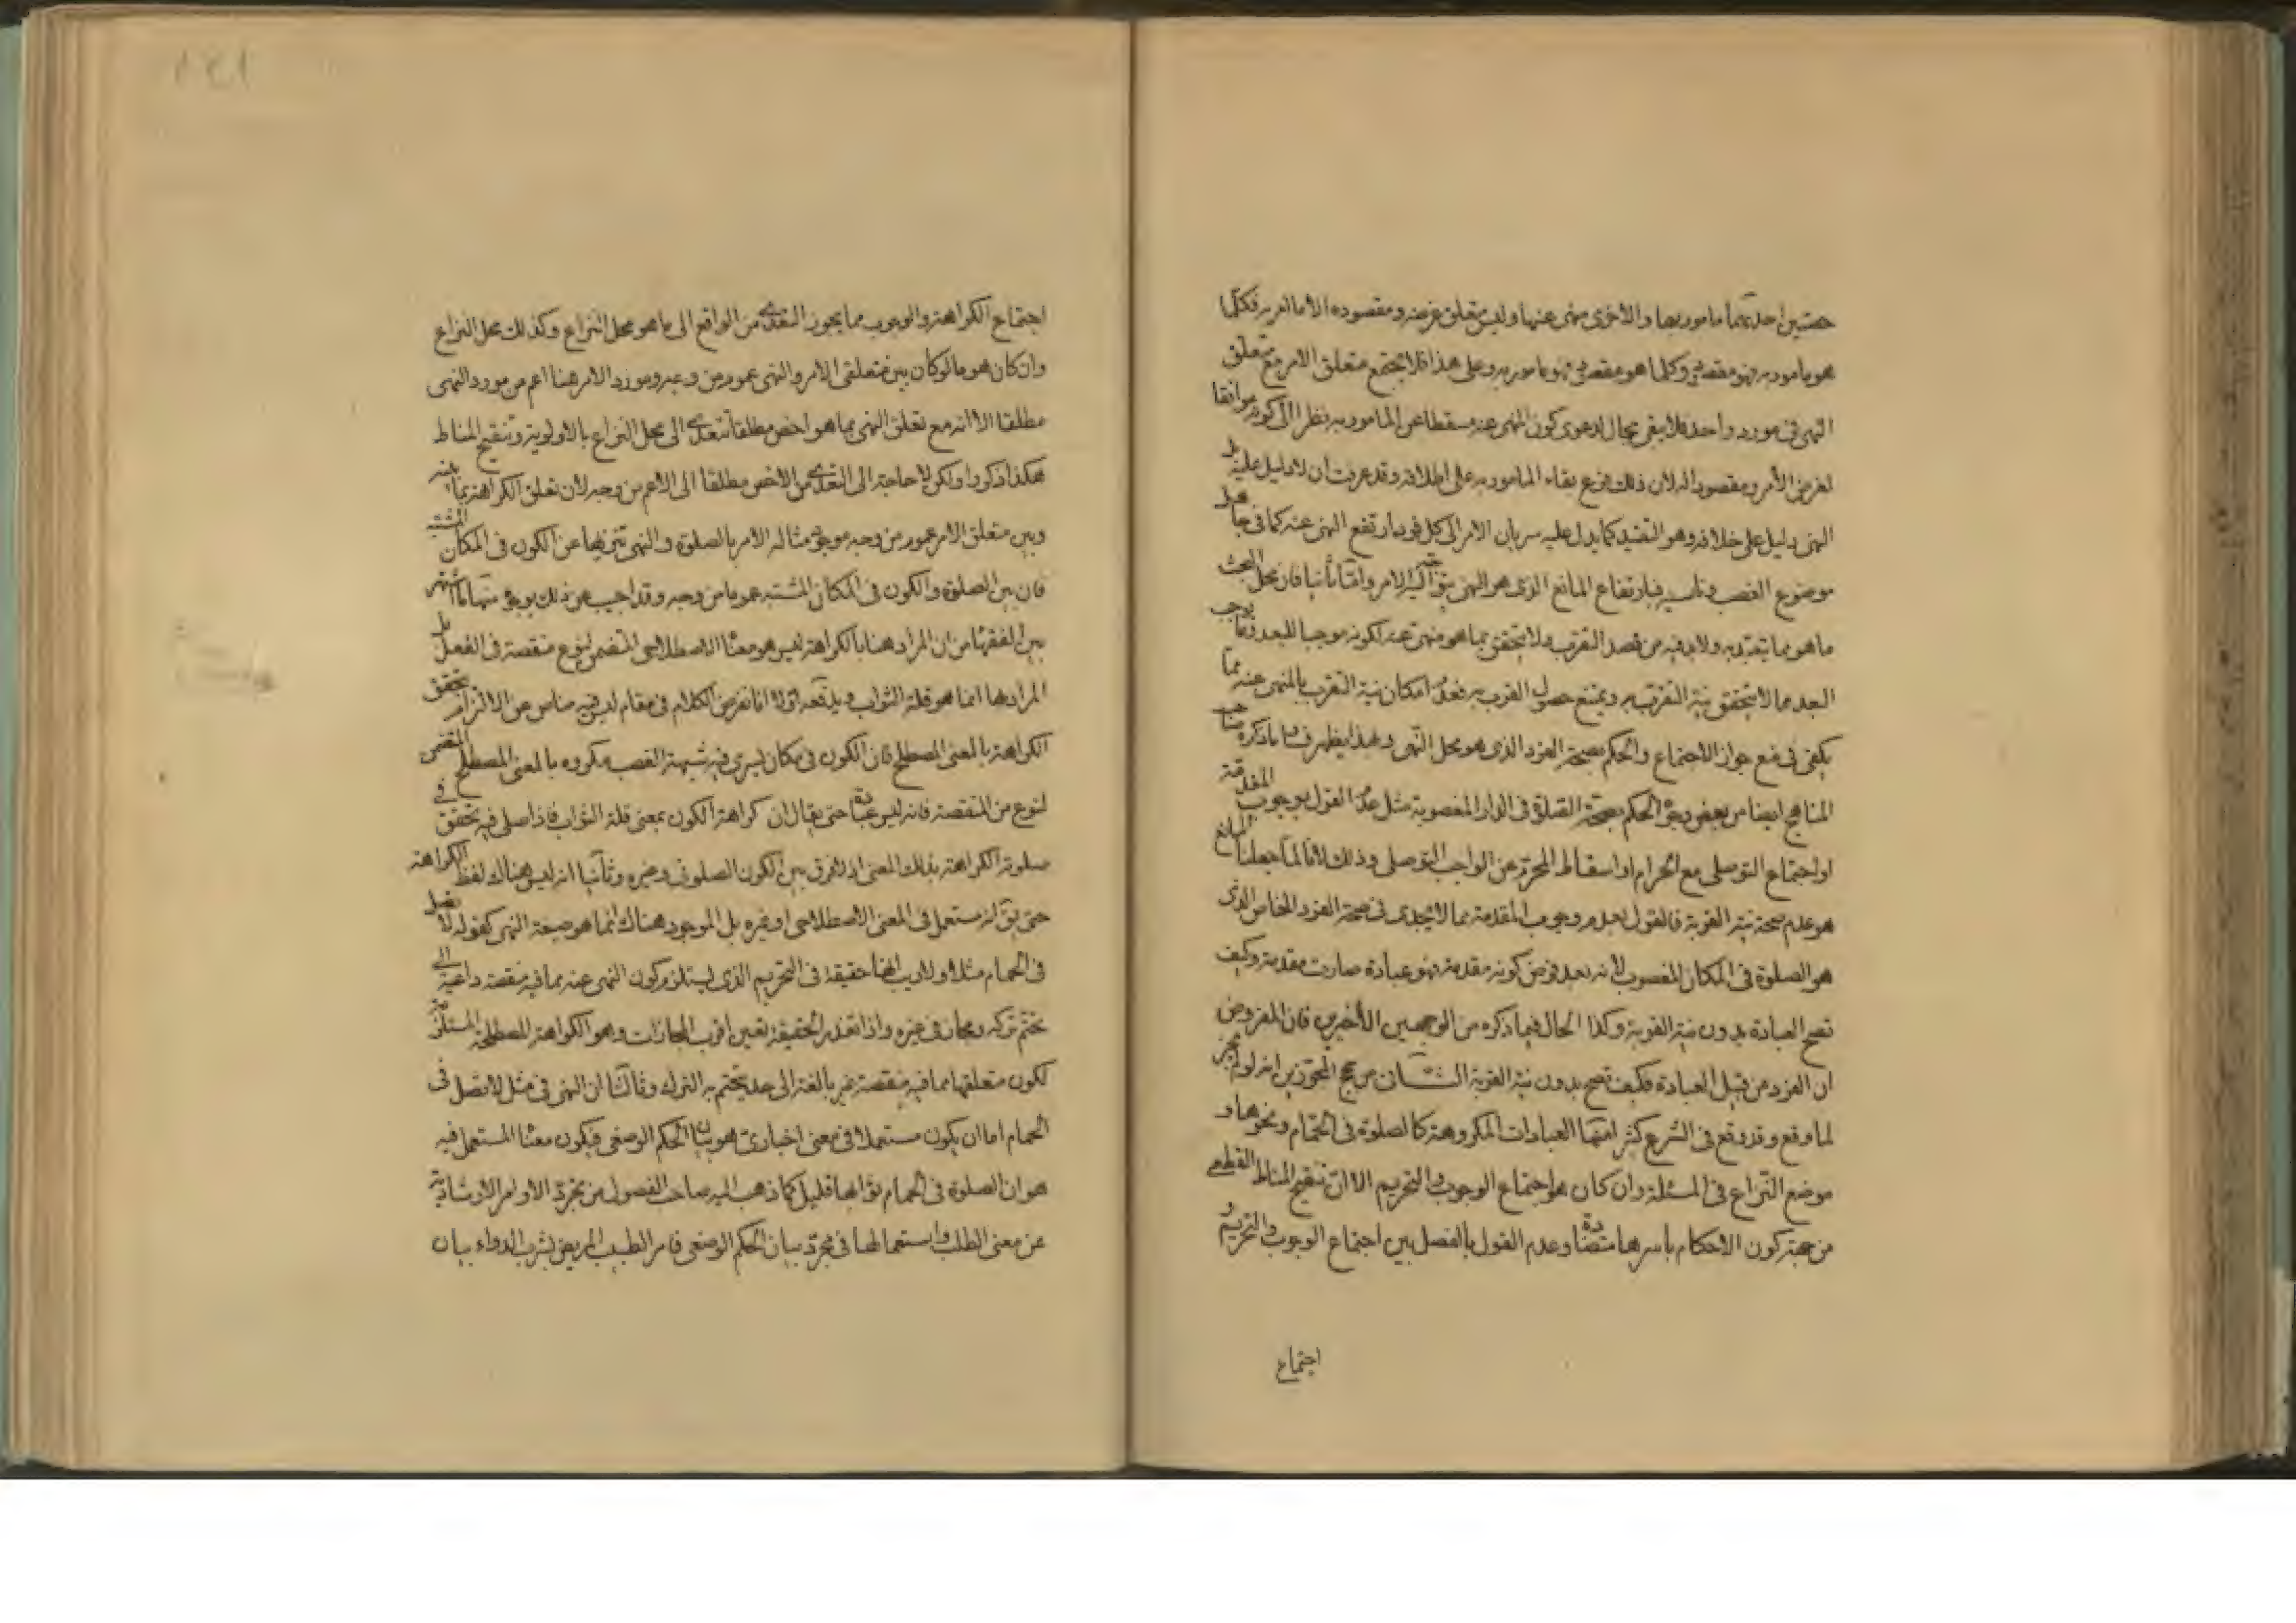 حصتين احدىهما مامور بها والاخرى منهى عنها وليس متعلق غرضه ومقصوده الا ما امر به فكلما
هو مامور به فهو مقصود وكلما هو مقصود فهو مامور به وعلى هذا فلا يجتمع متعلق الامر مع متعلق
النهى فى مورد واحد فلا يبقى مجال لدعوى كون المنهى عنه مسقطا عن المامور به نظرا الى كونه موافقا
لغرض الأمر ومقصوده لان ذلك فرع بقاء المامور به على اطلاقه وقد عرفت ان لا دليل عليه بل
النهى دليل على خلافه وهو التقييد كما يدل عليه سريان الامر الى كل فرد ارتفع النهى عنه كما فى جاهل
موضوع الغصب وناسيه فبارتفاع المانع الذى هو النهى يتوجه اليه الامر واما ثانيا فان محل البحث
ما هو مما يتعبد به ولا بد فيه من قصد التقرب ولا يتحقق بما هو منهى عنه لكونه موجبا للبعد وما يوجب
البعد مما لا يتحقق نية التقرب به ويمتنع حصول القرب به فعدم امكان نية التقرب بالمنهى عنه مما
يكفى فى منع جواز الاجتماع والحكم بصحة الفرد الذى هو محل النهى وبهذا يظهر فساد ما ذكره صاحب
المناهج ايضا من بعض وجوه الحكم بصحة الصلوة فى الدار المغصوبة مثل عدم القول بوجوب المقدمة
او اجتماع التوصلى مع الحرام او اسقاط المحرم عن الواجب التوصلى وذلك لانا لما جعلنا المانع
هو عدم صحة نية القربة فالقول بعدم وجوب المقدمة مما لا يجدى فى صحة الفرد الخاص الذى
هو الصلوة فى المكان المغصوب لانه بعد فرض كونه مقدمة فهو عبادة صارت مقدمة وكيف
تصح العبادة بدون نية القربة وكذا الحال فيما ذكره من الوجهين الأخيرين فان المفروض
ان الفرد من قبيل العبادة فكيف تصح بدون نية القربة الثــانى من حجج المجوزين انه لو لم يجز
لما وقع وقد وقع فى الشرع كثيرا منها العبادات المكروهة كالصلوة فى الحمام ونحوها و
موضع النزاع فى المسئلة وان كان هو اجتماع الوجوب والتحريم الا ان تنقيح المناط القطعى
من جهة كون الاحكام باسرها متضادة وعدم القول بالفصل بين اجتماع الوجوب والتحريم و
اجتماع
اجتماع الكراهة والوجوب مما يجوز التعدى من الواقع الى ما هو محل النزاع وكذلك محل النزاع
وان كان هو ما لو كان بين متعلقى الامر والنهى عموم من وجه ومورد الامر هنا اعم من مورد النهى
مطلقا الا انه مع تعلق النهى بما هو اخص مطلقا نتعدى الى محل النزاع بالاولوية وتنقيح المناط
هكذا ذكروا ولكن لا حاجة الى التعدى من الاخص مطلقا الى الاعم من وجه لان تعلق الكراهة بما بينه
وبين متعلق الامر عموم من وجه موجود مثاله الامر بالصلوة والنهى تنزيها عن الكون فى المكان المشتبه
فان بين الصلوة والكون فى المكان المشتبه عموما من وجه وقد اجيب عن ذلك بوجوه منها ما اشتهر
بين الفقهاء من ان المراد هنا بالكراهة ليس هو معناها الاصطلاحى المتضمن لنوع منقصة فى الفعل بل
المراد بها انما هو قلة الثواب ويدفعه اولا انا نفرض الكلام فى مقام ليس فيه مناص عن الالتزام بتحقق
الكراهة بالمعنى المصطلح فان الكون فى مكان يسرى فيه شبهة الغصب مكروه بالمعنى المصطلح المتضمن
لنوع من المنقصة فانه ليس عبادة حتى يقال ان كراهة الكون بمعنى قلة الثواب فاذا صلى فيه تحقق فى
صلوته الكراهة بذلك المعنى اذ لا فرق بين الكون الصلوتى وغيره وثانيا انه ليس هناك لفظ الكراهة
حتى يق انه مستعمل فى المعنى الاصطلاحى او غيره بل الموجود هناك انما هو صيغة النهى كقوله لا تصل
فى الحمام مثلا ولا ريب انها حقيقة فى التحريم الذى يستلزم كون النهى عنه بما فيه منقصة داعية الى
تحتم تركه ومجاز فى غيره واذا تعذر الحقيقة تعين اقرب المجازات وهو الكراهة المصطلحة المستلزمة
لكون متعلقها مما فيه منقصة غير بالغة الى حد يتحتم به الترك وثالثا ان النهى فى مثل لا تصل فى
الحمام اما ان يكون مستعملا فى معنى اخبارى هو بيان الحكم الوضعى فيكون معناها المستعمل فيه
هو ان الصلوة فى الحمام ثوابها قليل كما ذهب اليه صاحب الفصول من تجرد الاوامر الارشادية
عن معنى الطلب واستعمالها فى مجرد بيان الحكم الوضعى فامر الطبيب المريض بشرب الدواء بيان